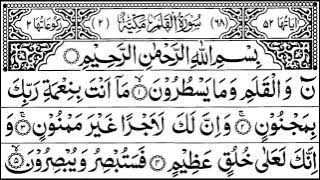 اٰيَاتُهَا ٥٢ (٦٨) سُوْرَةُ الْقَلَمِ مَكِّيَّةٌ (٢) رُكُوْعَاتُهَا ٢
بِسْمِ اللّٰهِ الرَّحْمٰنِ الرَّحِيْمِ
نٓ وَالْقَلَمِ وَمَا يَسْطُرُوْنَ ۝١ مَآ اَنْتَ بِنِعْمَةِ رَبِّكَ
بِمَجْنُوْنٍ ۝٢ وَاِنَّ لَكَ لَاَجْرًا غَيْرَ مَمْنُوْنٍ ۝٣ وَ
اِنَّكَ لَعَلٰى خُلُقٍ عَظِيْمٍ ۝٤ فَسَتُبْصِرُ وَيُبْصِرُوْنَ ۝٥